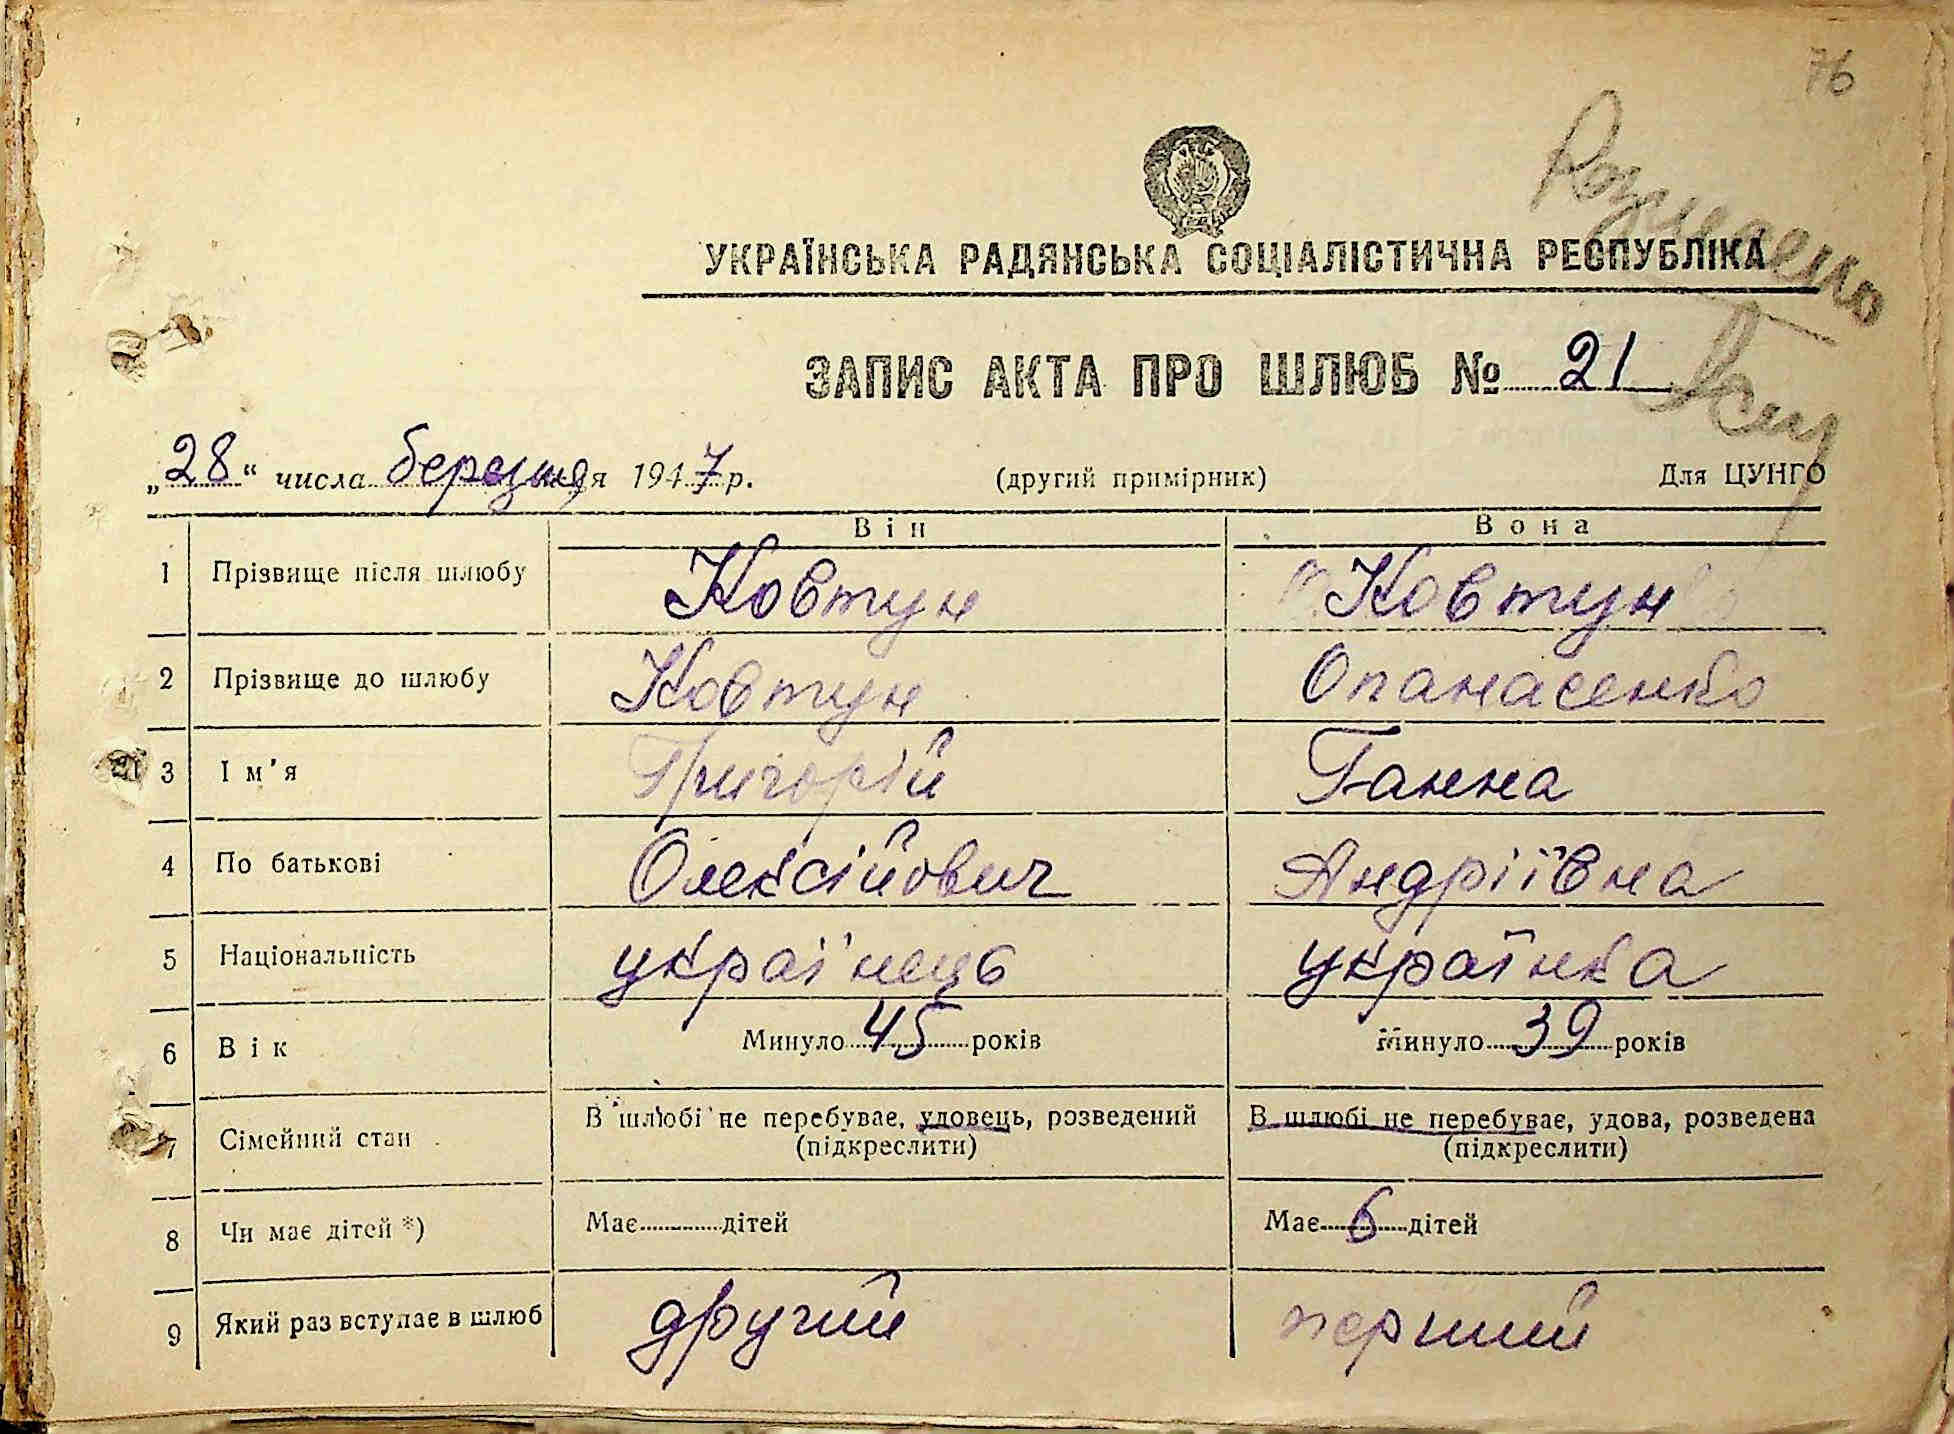 76
УКРАЇНСЬКА РАДЯНСЬКА СОЦІАЛІСТИЧНА РЕСПУБЛІКА
ЗАПИС АКТА ПРО ШЛЮБ № 21
„28“ числа березня 1947 р. (другий примірник) Для ЦУНГО
Він Вона
1 Прізвище після шлюбу Ковтун Ковтун
2 Прізвище до шлюбу Ковтун Опанасенко
3 Ім'я Григорій Ганна
4 По батькові Олексійович Андріївна
5 Національність українець українка
6 Вік Минуло 45 років Минуло 39 років
7 Сімейний стан В шлюбі не перебуває, удовець, розведений В шлюбі не перебуває, удова, розведена
(підкреслити) (підкреслити)
8 Чи має дітей *) Має дітей Має 6 дітей
9 Який раз вступає в шлюб другий перший